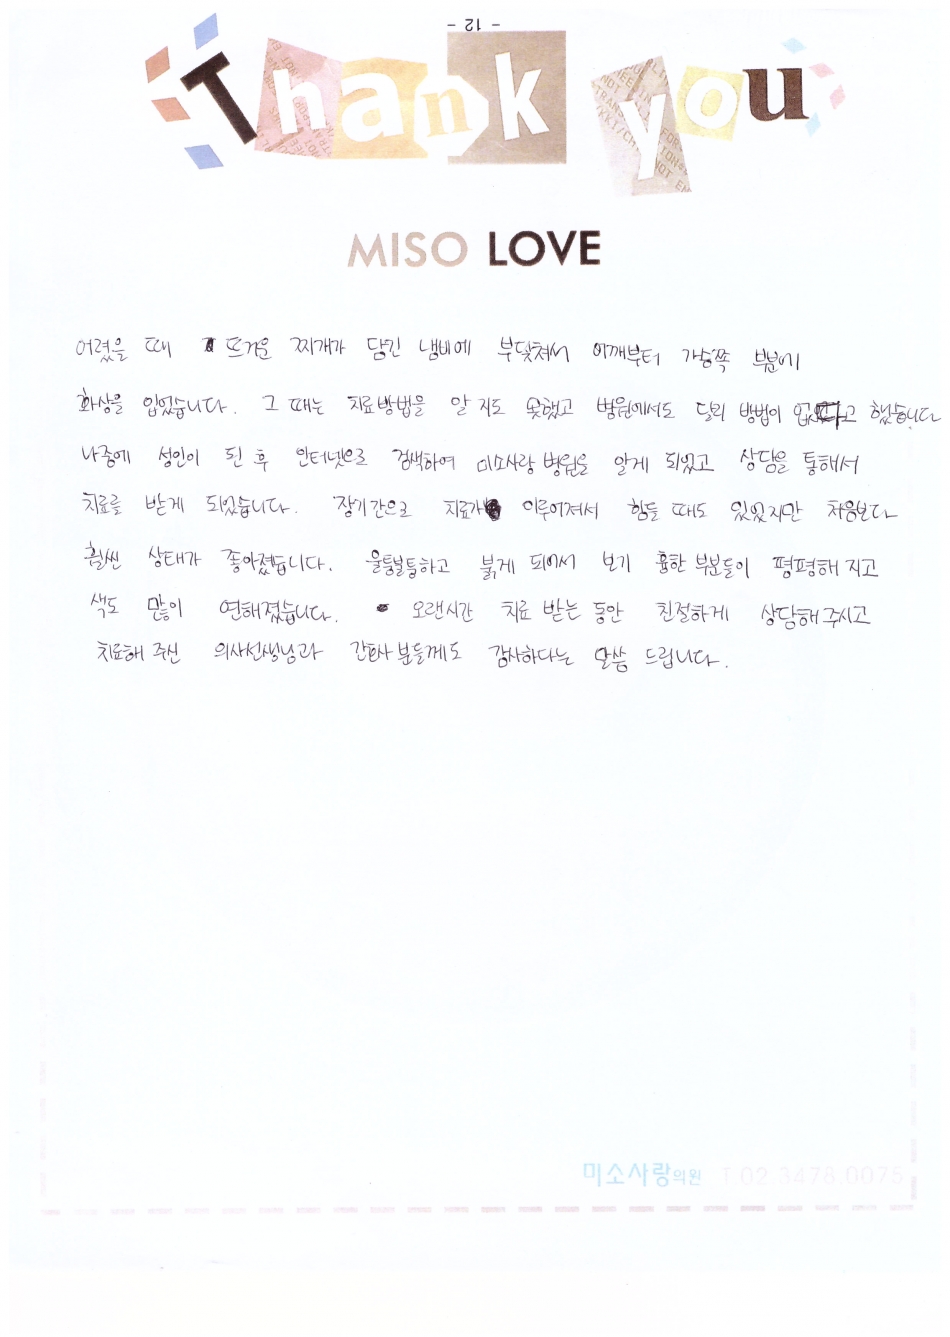 - 12 -
Thank you
MISO LOVE
어렸을 때 뜨거운 찌개가 담긴 냄비에 부딪쳐서 어깨부터 가슴쪽 부분에
화상을 입었습니다. 그 때는 치료방법을 알 지도 못했고 병원에서도 달리 방법이 없다고 했습니다
나중에 성인이 된 후 인터넷으로 검색하여 미소사랑 병원을 알게 되었고 상담을 통해서
치료를 받게 되었습니다. 장기간으로 치료가 이루어져서 힘들 때도 있었지만 처음보다
훨씬 상태가 좋아졌습니다. 울퉁불퉁하고 붉게 되어서 보기 흉한 부분들이 평평해 지고
색도 많이 연해졌습니다. 오랜시간 치료 받는 동안 친절하게 상담해 주시고
치료해 주신 의사선생님과 간호사 분들께도 감사하다는 말씀 드립니다.
미소사랑의원 T 02.3478.0075